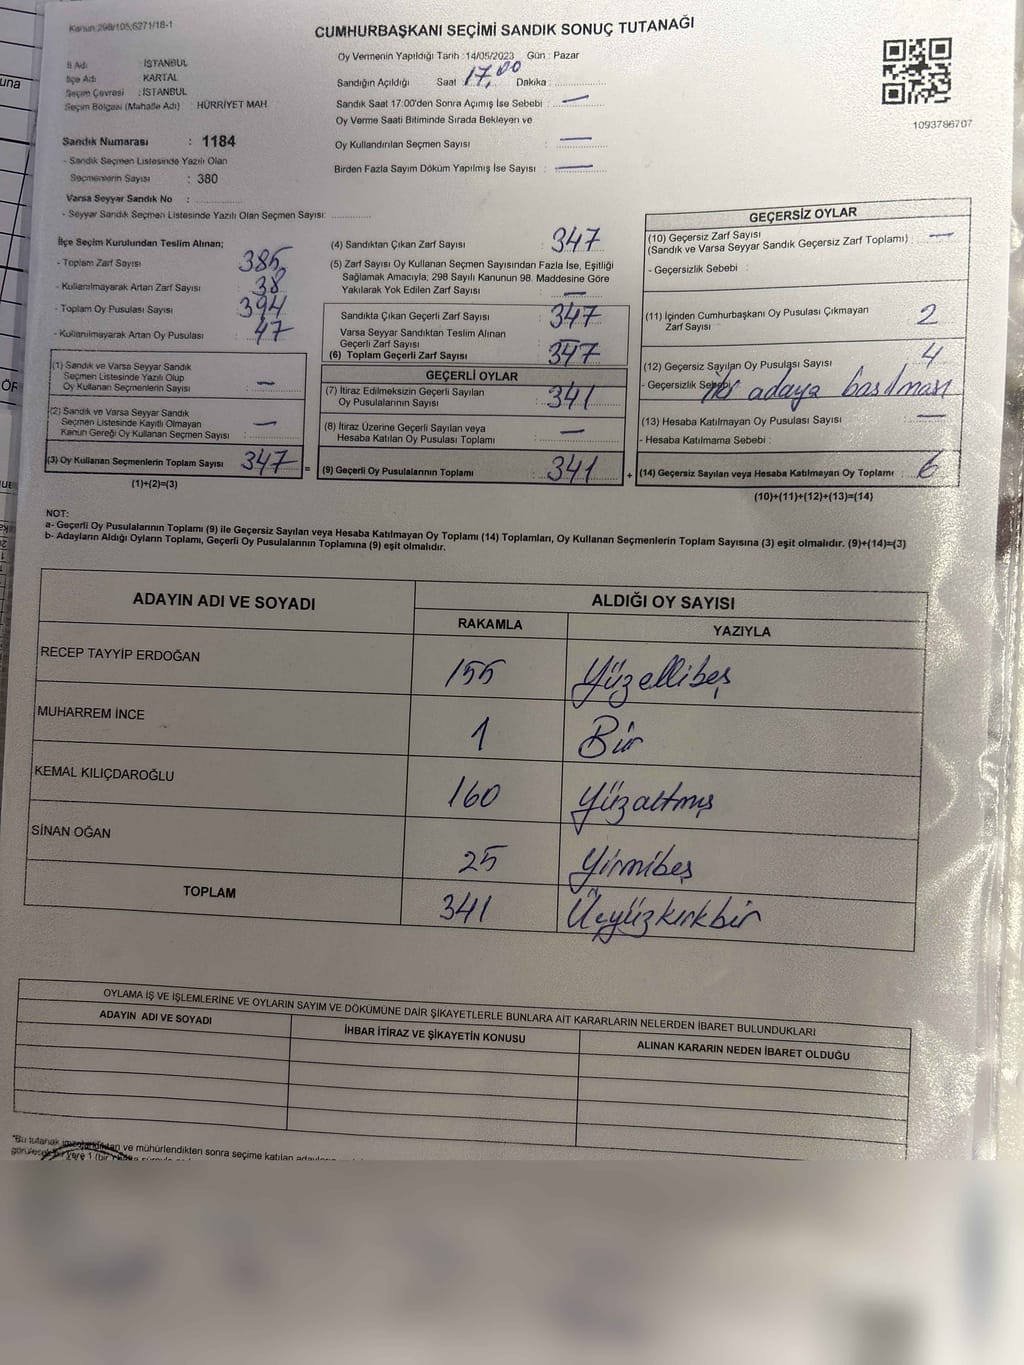 Kanun:298/105,6271/18-1
CUMHURBAŞKANI SEÇİMİ SANDIK SONUÇ TUTANAĞI
İl Adı : İSTANBUL
İlçe Adı : KARTAL
Seçim Çevresi : İSTANBUL
Seçim Bölgesi (Mahalle Adı) : HÜRRİYET MAH.
Sandık Numarası : 1184
- Sandık Seçmen Listesinde Yazılı Olan
Seçmenlerin Sayısı : 380
Varsa Seyyar Sandık No :
- Seyyar Sandık Seçmen Listesinde Yazılı Olan Seçmen Sayısı:
Oy Vermenin Yapıldığı Tarih :14/05/2023 Gün : Pazar
Sandığın Açıldığı Saat : 17,00 Dakika :
Sandık Saat 17:00'den Sonra Açımış İse Sebebi : —
Oy Verme Saati Bitiminde Sırada Bekleyen ve
Oy Kullandırılan Seçmen Sayısı : —
Birden Fazla Sayım Döküm Yapılmış İse Sayısı : —
1093786707
İlçe Seçim Kurulundan Teslim Alınan;
- Toplam Zarf Sayısı 385
- Kullanılmayarak Artan Zarf Sayısı 38
- Toplam Oy Pusulası Sayısı 394
- Kullanılmayarak Artan Oy Pusulası 47
(1) Sandık ve Varsa Seyyar Sandık
Seçmen Listesinde Yazılı Olup
Oy Kullanan Seçmenlerin Sayısı : —
(2) Sandık ve Varsa Seyyar Sandık
Seçmen Listesinde Kayıtlı Olmayan
Kanun Gereği Oy Kullanan Seçmen Sayısı : —
(3) Oy Kullanan Seçmenlerin Toplam Sayısı 347 =
(1)+(2)=(3)
(4) Sandıktan Çıkan Zarf Sayısı : 347
(5) Zarf Sayısı Oy Kullanan Seçmen Sayısından Fazla İse, Eşitliği
Sağlamak Amacıyla; 298 Sayılı Kanunun 98. Maddesine Göre
Yakılarak Yok Edilen Zarf Sayısı : —
Sandıkta Çıkan Geçerli Zarf Sayısı : 347
Varsa Seyyar Sandıktan Teslim Alınan
Geçerli Zarf Sayısı :
(6) Toplam Geçerli Zarf Sayısı 347
GEÇERLİ OYLAR
(7) İtiraz Edilmeksizin Geçerli Sayılan
Oy Pusulalarının Sayısı : 341
(8) İtiraz Üzerine Geçerli Sayılan veya
Hesaba Katılan Oy Pusulası Toplamı : —
(9) Geçerli Oy Pusulalarının Toplamı : 341 +
GEÇERSİZ OYLAR
(10) Geçersiz Zarf Sayısı
(Sandık ve Varsa Seyyar Sandık Geçersiz Zarf Toplamı) : —
- Geçersizlik Sebebi :
(11) İçinden Cumhurbaşkanı Oy Pusulası Çıkmayan
Zarf Sayısı : 2
(12) Geçersiz Sayılan Oy Pusulası Sayısı : 4
- Geçersizlik Sebebi : iki adaya basılması
(13) Hesaba Katılmayan Oy Pusulası Sayısı : —
- Hesaba Katılmama Sebebi :
(14) Geçersiz Sayılan veya Hesaba Katılmayan Oy Toplamı : 6
(10)+(11)+(12)+(13)=(14)
NOT:
a- Geçerli Oy Pusulalarının Toplamı (9) ile Geçersiz Sayılan veya Hesaba Katılmayan Oy Toplamı (14) Toplamları, Oy Kullanan Seçmenlerin Toplam Sayısına (3) eşit olmalıdır. (9)+(14)=(3)
b- Adayların Aldığı Oyların Toplamı, Geçerli Oy Pusulalarının Toplamına (9) eşit olmalıdır.
ADAYIN ADI VE SOYADI
ALDIĞI OY SAYISI
RAKAMLA YAZIYLA
RECEP TAYYİP ERDOĞAN 155 Yüzellibeş
MUHARREM İNCE 1 Bir
KEMAL KILIÇDAROĞLU 160 Yüzaltmış
SİNAN OĞAN 25 Yirmibeş
TOPLAM 341 Üçyüzkırkbir
OYLAMA İŞ VE İŞLEMLERİNE VE OYLARIN SAYIM VE DÖKÜMÜNE DAİR ŞİKAYETLERLE BUNLARA AİT KARARLARIN NELERDEN İBARET BULUNDUKLARI
ADAYIN ADI VE SOYADI İHBAR İTİRAZ VE ŞİKAYETİN KONUSU ALINAN KARARIN NEDEN İBARET OLDUĞU
"Bu tutanak ve mühürlendikten sonra seçime katılan
yere 1 (bir